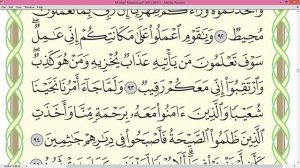 وَٱتَّخَذْتُمُوهُ وَرَآءَكُمْ ظِهْرِيًّا إِنَّ رَبِّى بِمَا تَعْمَلُونَ
مُحِيطٌ ٩٢ وَيَٰقَوْمِ ٱعْمَلُوا۟ عَلَىٰ مَكَانَتِكُمْ إِنِّى عَٰمِلٌ
سَوْفَ تَعْلَمُونَ مَن يَأْتِيهِ عَذَابٌ يُخْزِيهِ وَمَنْ هُوَ كَٰذِبٌ
وَٱرْتَقِبُوٓا۟ إِنِّى مَعَكُمْ رَقِيبٌ ٩٣ وَلَمَّا جَآءَ أَمْرُنَا نَجَّيْنَا
شُعَيْبًا وَٱلَّذِينَ ءَامَنُوا۟ مَعَهُۥ بِرَحْمَةٍ مِّنَّا وَأَخَذَتِ
ٱلَّذِينَ ظَلَمُوا۟ ٱلصَّيْحَةُ فَأَصْبَحُوا۟ فِى دِيَٰرِهِمْ جَٰثِمِينَ ٩٤